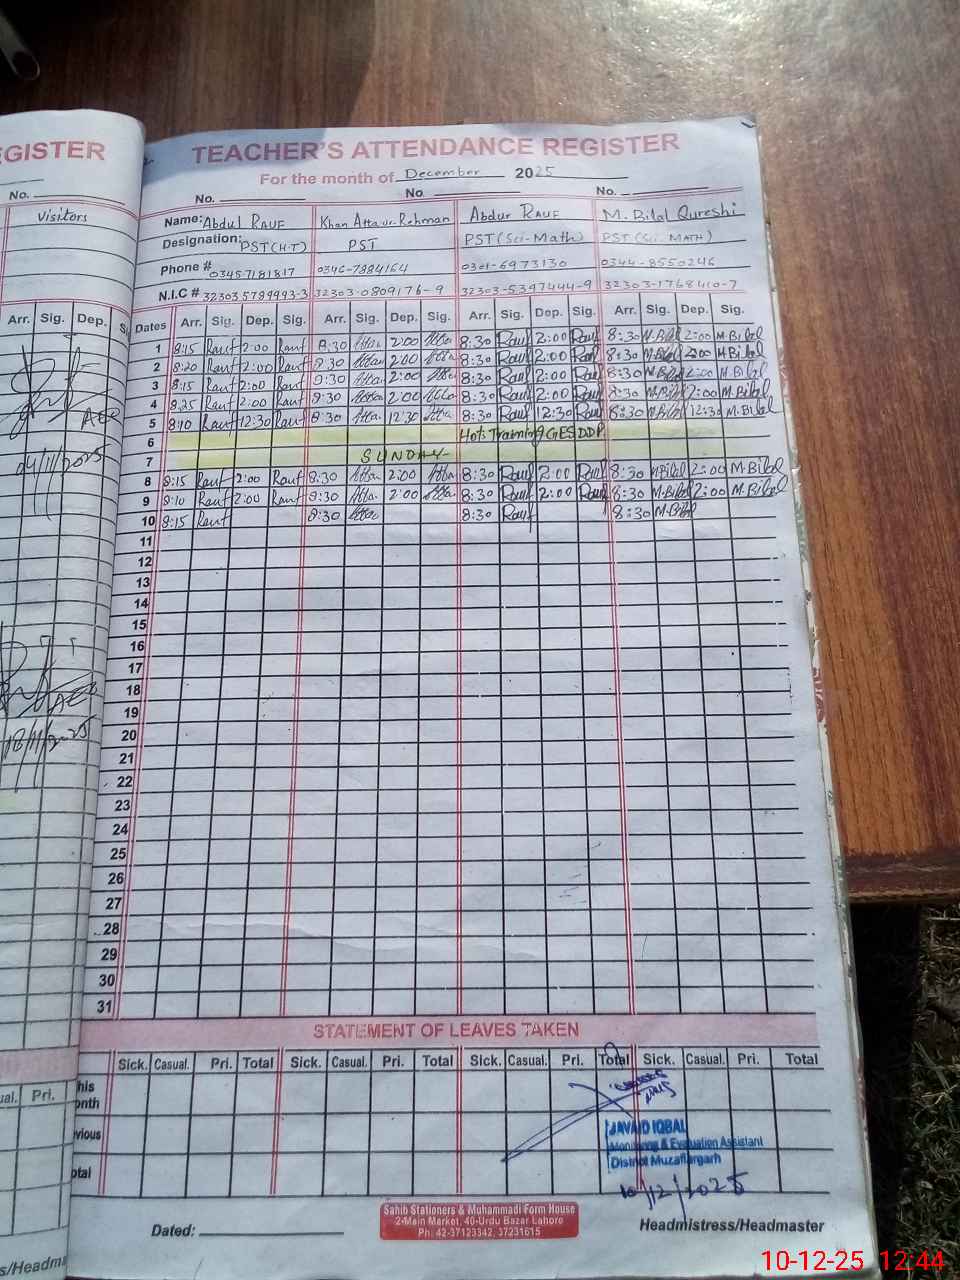 EGISTER
No.
Visitors
Arr. Sig. Dep. S
AEO
04/11/2025
AEO
18/11/2025
ual. Pri.
s/Headma
TEACHER'S ATTENDANCE REGISTER
For the month of December 2025
No. No No.
Name: Abdul Rauf Khan Atta ur-Rehman Abdur Rauf M. Bilal Qureshi
Designation: PST(H-T) PST PST(Sci-Math) PST(Sci-MATH)
Phone # 0345-7181817 0346-7884164 0301-6973130 0344-8550246
N.I.C # 32303 5789993-3 32303-0809176-9 32303-5397444-9 32303-1768410-7
Dates Arr. Sig. Dep. Sig. Arr. Sig. Dep. Sig. Arr. Sig. Dep. Sig. Arr. Sig. Dep. Sig.
1 8:15 Rauf 2:00 Rauf 8:30 Atta 2:00 Atta 8:30 Rauf 2:00 Rauf 8:30 M.Bilal 2:00 M.Bilal
2 8:20 Rauf 2:00 Rauf 8:30 Atta 2:00 Atta 8:30 Rauf 2:00 Rauf 8:30 M.Bilal 2:00 M.Bilal
3 8:15 Rauf 2:00 Rauf 8:30 Atta 2:00 Atta 8:30 Rauf 2:00 Rauf 8:30 M.Bilal 2:00 M.Bilal
4 8:25 Rauf 2:00 Rauf 8:30 Atta 2:00 Atta 8:30 Rauf 2:00 Rauf 8:30 M.Bilal 2:00 M.Bilal
5 8:10 Rauf 12:30 Rauf 8:30 Atta 12:30 Atta 8:30 Rauf 12:30 Rauf 8:30 M.Bilal 12:30 M.Bilal
6 Hots Training GES DDP
7 SUNDAY
8 8:15 Rauf 2:00 Rauf 8:30 Atta 2:00 Atta 8:30 Rauf 2:00 Rauf 8:30 M.Bilal 2:00 M.Bilal
9 8:10 Rauf 2:00 Rauf 8:30 Atta 2:00 Atta 8:30 Rauf 2:00 Rauf 8:30 M.Bilal 2:00 M.Bilal
10 8:15 Rauf 8:30 Atta 8:30 Rauf 8:30 M.Bilal
11
12
13
14
15
16
17
18
19
20
21
22
23
24
25
26
27
28
29
30
31
STATEMENT OF LEAVES TAKEN
Sick. Casual. Pri. Total Sick. Casual. Pri. Total Sick. Casual. Pri. Total Sick. Casual. Pri. Total
his
onth
vious
otal
JAVAID IQBAL
Monitoring & Evaluation Assistant
District Muzaffargarh
10/12/2025
Dated:
Sahib Stationers & Muhammadi Form House
2-Main Market, 40-Urdu Bazar Lahore
Ph: 42-37123342, 37231615
Headmistress/Headmaster
10-12-25 12:44